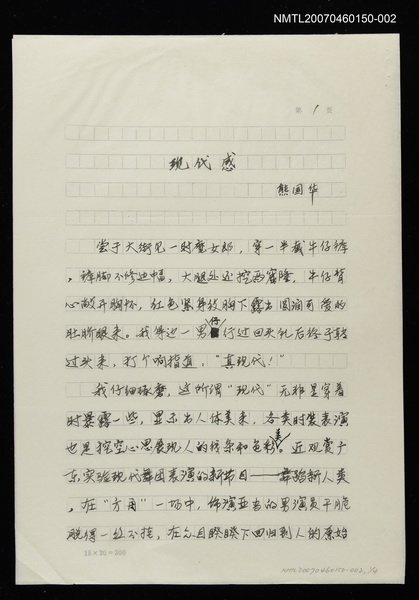 NMTL20070460150-002
第 1 页
现代感
熊国华
尝于大街见一时髦女郎，穿一半截牛仔裤
，裤脚不修边幅，大腿处还挖两窟窿，牛仔背
心敞开胸怀，红色紧身衣胸下露出圆润可爱的
肚脐眼来。我身边一男仔行过回头礼后终于转
过头来，打个响指道，“真现代！”
我仔细琢磨，这所谓“现代”无非是穿着
时暴露一些，显示出人体美来，各类时装表演
也是挖空心思展现人的线条和色彩美。近观赏广
东实验现代舞团表演的新节目——舞蹈新人类
。在“方舟”一场中，饰演亚当的男演员干脆
脱得一丝不挂，在众目睽睽下回归到人的原始
15×20=300
NMTL20070460150-002, 1/4